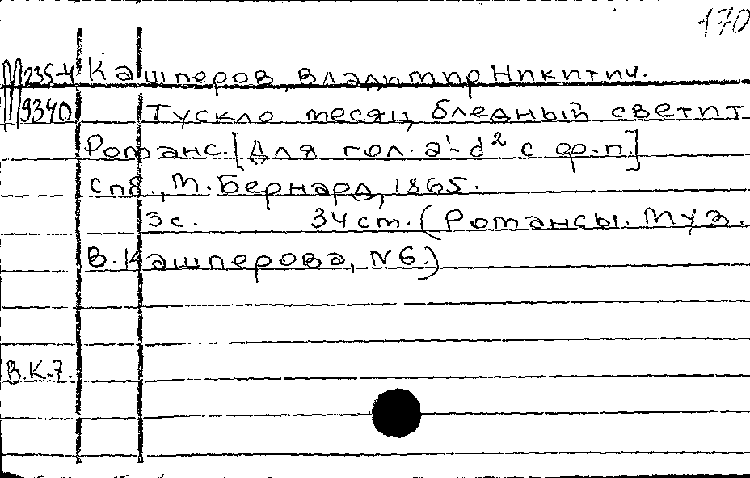 170
М235-4 Кашперов, Владимир Никитич.
9340 Тускло месяц бледный светит
Романс. [Для гол. a¹-d² с ф.п.]
Спб., М. Бернард, 1865.
3с. 34см. (Романсы. Муз.
В. Кашперова, N6.)
В.К.7.